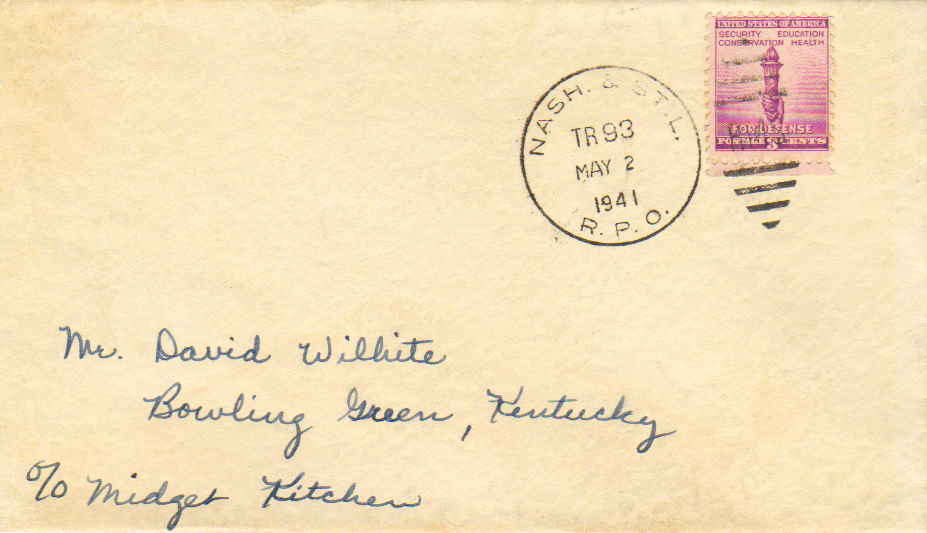 UNITED STATES OF AMERICA
SECURITY EDUCATION
CONSERVATION HEALTH
FOR DEFENSE
POSTAGE 3 CENTS
NASH. & ST. L.
TR 93
MAY 2
1941
R. P. O.
Mr. David Wilhite
Bowling Green, Kentucky
c/o Midget Kitchen